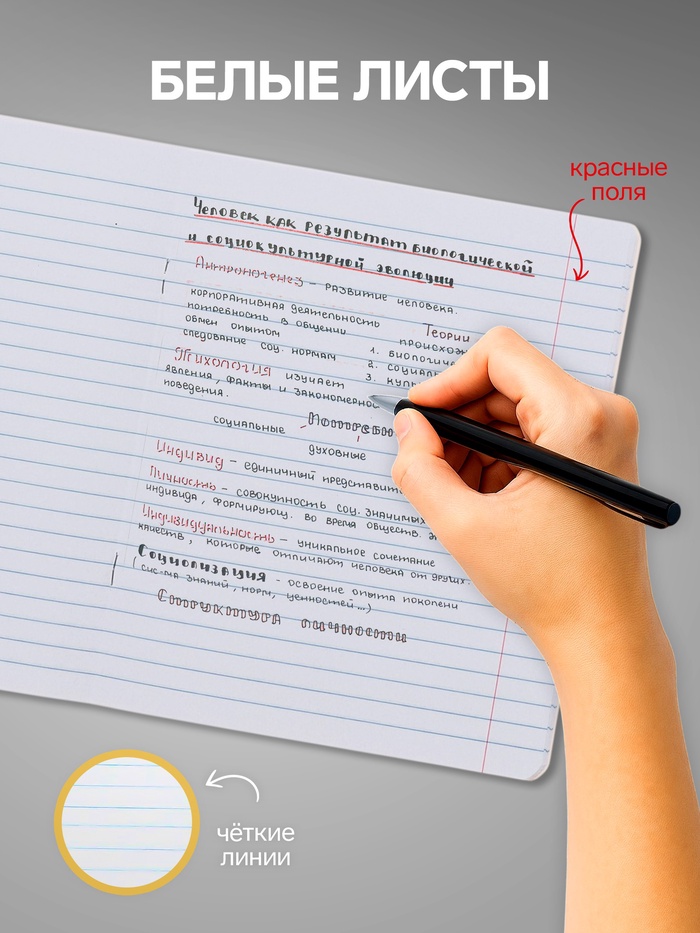 БЕЛЫЕ ЛИСТЫ
красные
поля
Человек как результат биологической
и социокультурной эволюции
Антропогенез – развитие человека.
корпоративная деятельность
потребность в общении
обмен опытом
следование соц. нормам
Теории
1. биологиче
2. социаль
3. куль
Психология изучает
явления, факты и закономернос
поведения.
социальные
духовные
Индивид – единичный представит
Личность – совокупность соц. значимых
индивида, формирующ. во время обществ.
Индивидуальность – уникальное сочетание
качеств, которые отличают человека от других.
Социализация - освоение опыта поколени
(сис-ма знаний, норм, ценностей...)
Структура личности
чёткие
линии